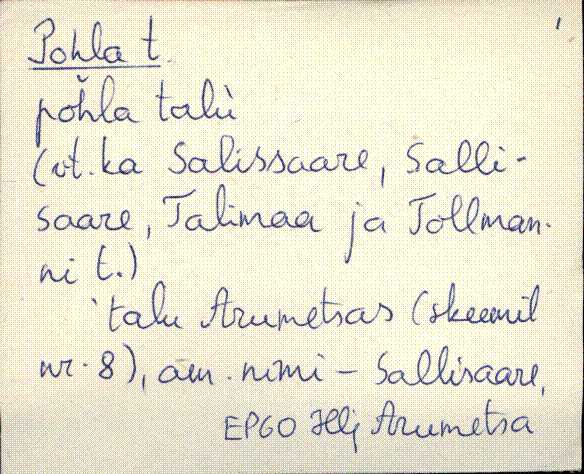 Pohla t.
pŏhla talù
(vt. ka Salissaare, Salli-
saare, Talimaa ja Tollman-
ni t.)
'talu Arumetsas (skeemil
nr. 8), am. nimi - Sallisaare,
EPGO Hlj Arumetsa